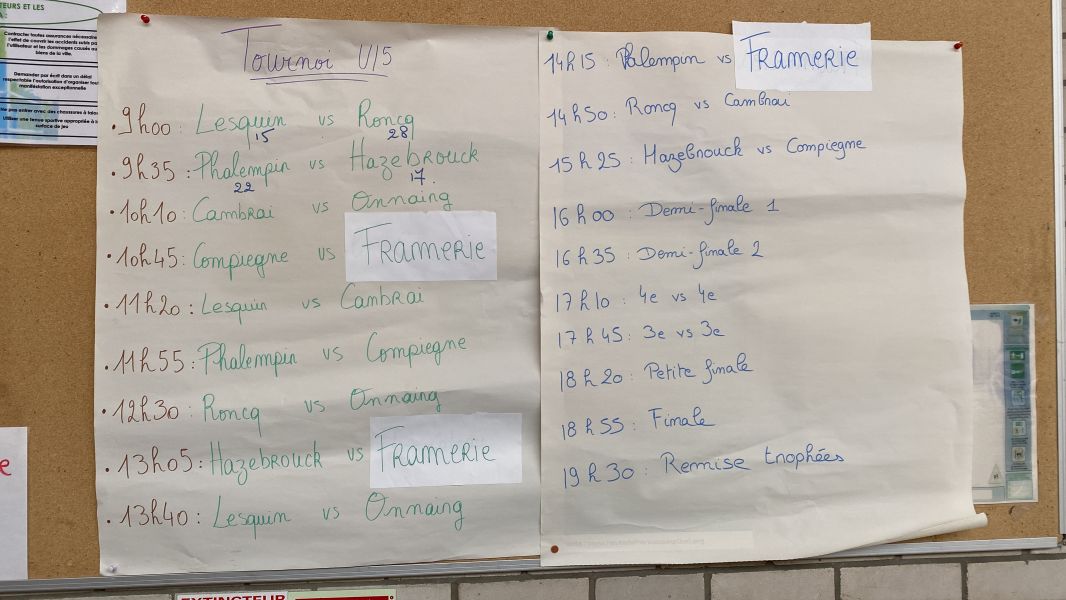 TEURS ET LES
Contracter toutes assurances nécessaire
l'effet de couvrir les accidents subis pa
l'utilisateur et les dommages causés au
biens de la ville.
Demander par écrit dans un délai
respectable l'autorisation d'organiser tout
manifestation exceptionnelle
Ne pas entrer avec des chaussures à talon
Utiliser une tenue sportive appropriée à l
surface de jeu
e
Tournoi U15
• 9h00 : Lesquin vs Roncq
15 28
• 9h35 : Phalempin vs Hazebrouck
22 17
• 10h10 : Cambrai vs Onnaing
• 10h45 : Compiegne vs FRAMERIE
• 11h20 : Lesquin vs Cambrai
• 11h55 : Phalempin vs Compiegne
• 12h30 : Roncq vs Onnaing
• 13h05 : Hazebrouck vs FRAMERIE
• 13h40 : Lesquin vs Onnaing
14h15 : Phalempin vs FRAMERIE
14h50 : Roncq vs Cambrai
15h25 : Hazebrouck vs Compiegne
16h00 : Demi-finale 1
16h35 : Demi-finale 2
17h10 : 4e vs 4e
17h45 : 3e vs 3e
18h20 : Petite finale
18h55 : Finale
19h30 : Remise trophées
EXTINCTEUR